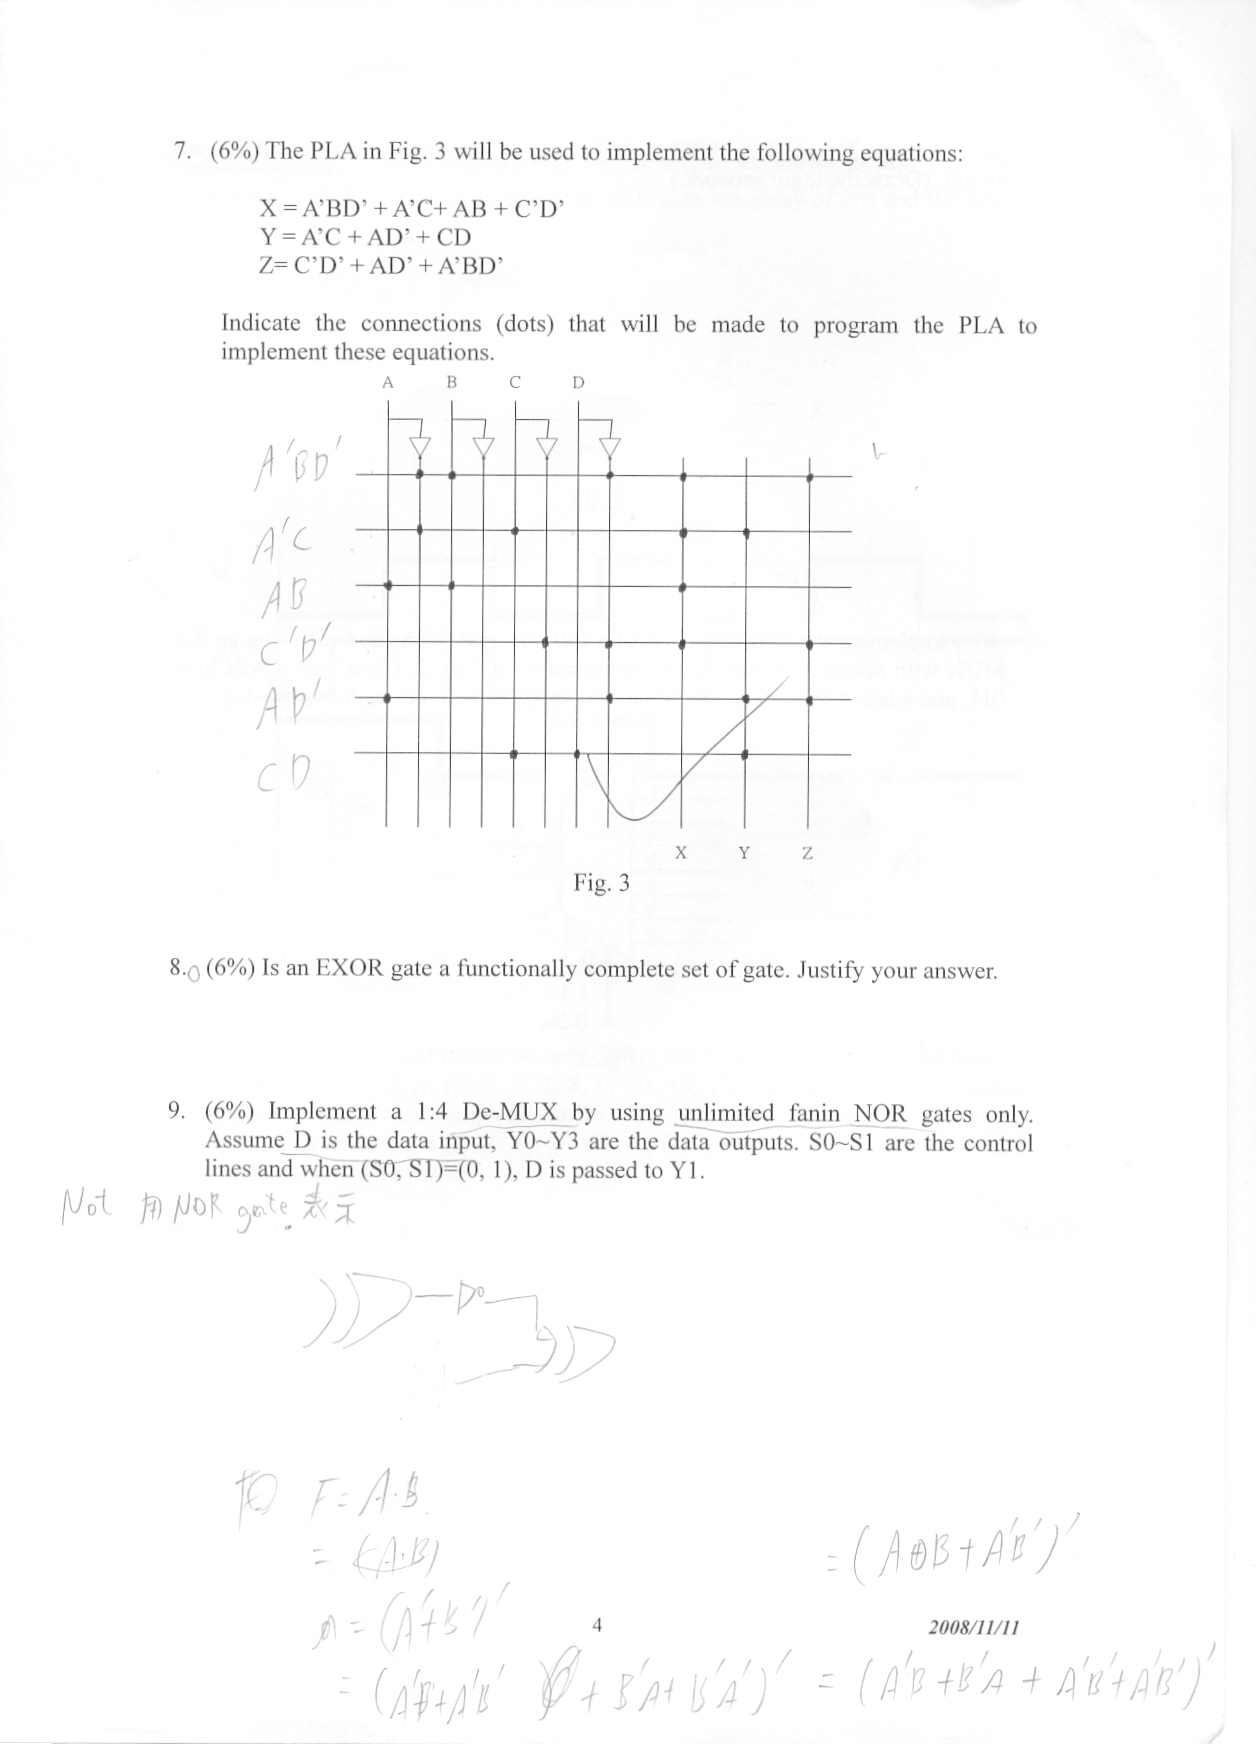 7. (6%) The PLA in Fig. 3 will be used to implement the following equations:
X = A’BD’ + A’C+ AB + C’D’
Y = A’C + AD’ + CD
Z= C’D’ + AD’ + A’BD’
Indicate the connections (dots) that will be made to program the PLA to
implement these equations.
A B C D
A'BD'
A'C
AB
C'D'
AD'
CD
X Y Z
Fig. 3
8. (6%) Is an EXOR gate a functionally complete set of gate. Justify your answer.
9. (6%) Implement a 1:4 De-MUX by using unlimited fanin NOR gates only.
Assume D is the data input, Y0~Y3 are the data outputs. S0~S1 are the control
lines and when (S0, S1)=(0, 1), D is passed to Y1.
Not 用 NOR gate 表示
F = A·B
= (A·B)
= (A'+B')'
= (A'B'+A'B + B'A+B'A')' = (A'B+B'A + A'B'+A'B')'
= (A⊕B+A'B')'
4
2008/11/11